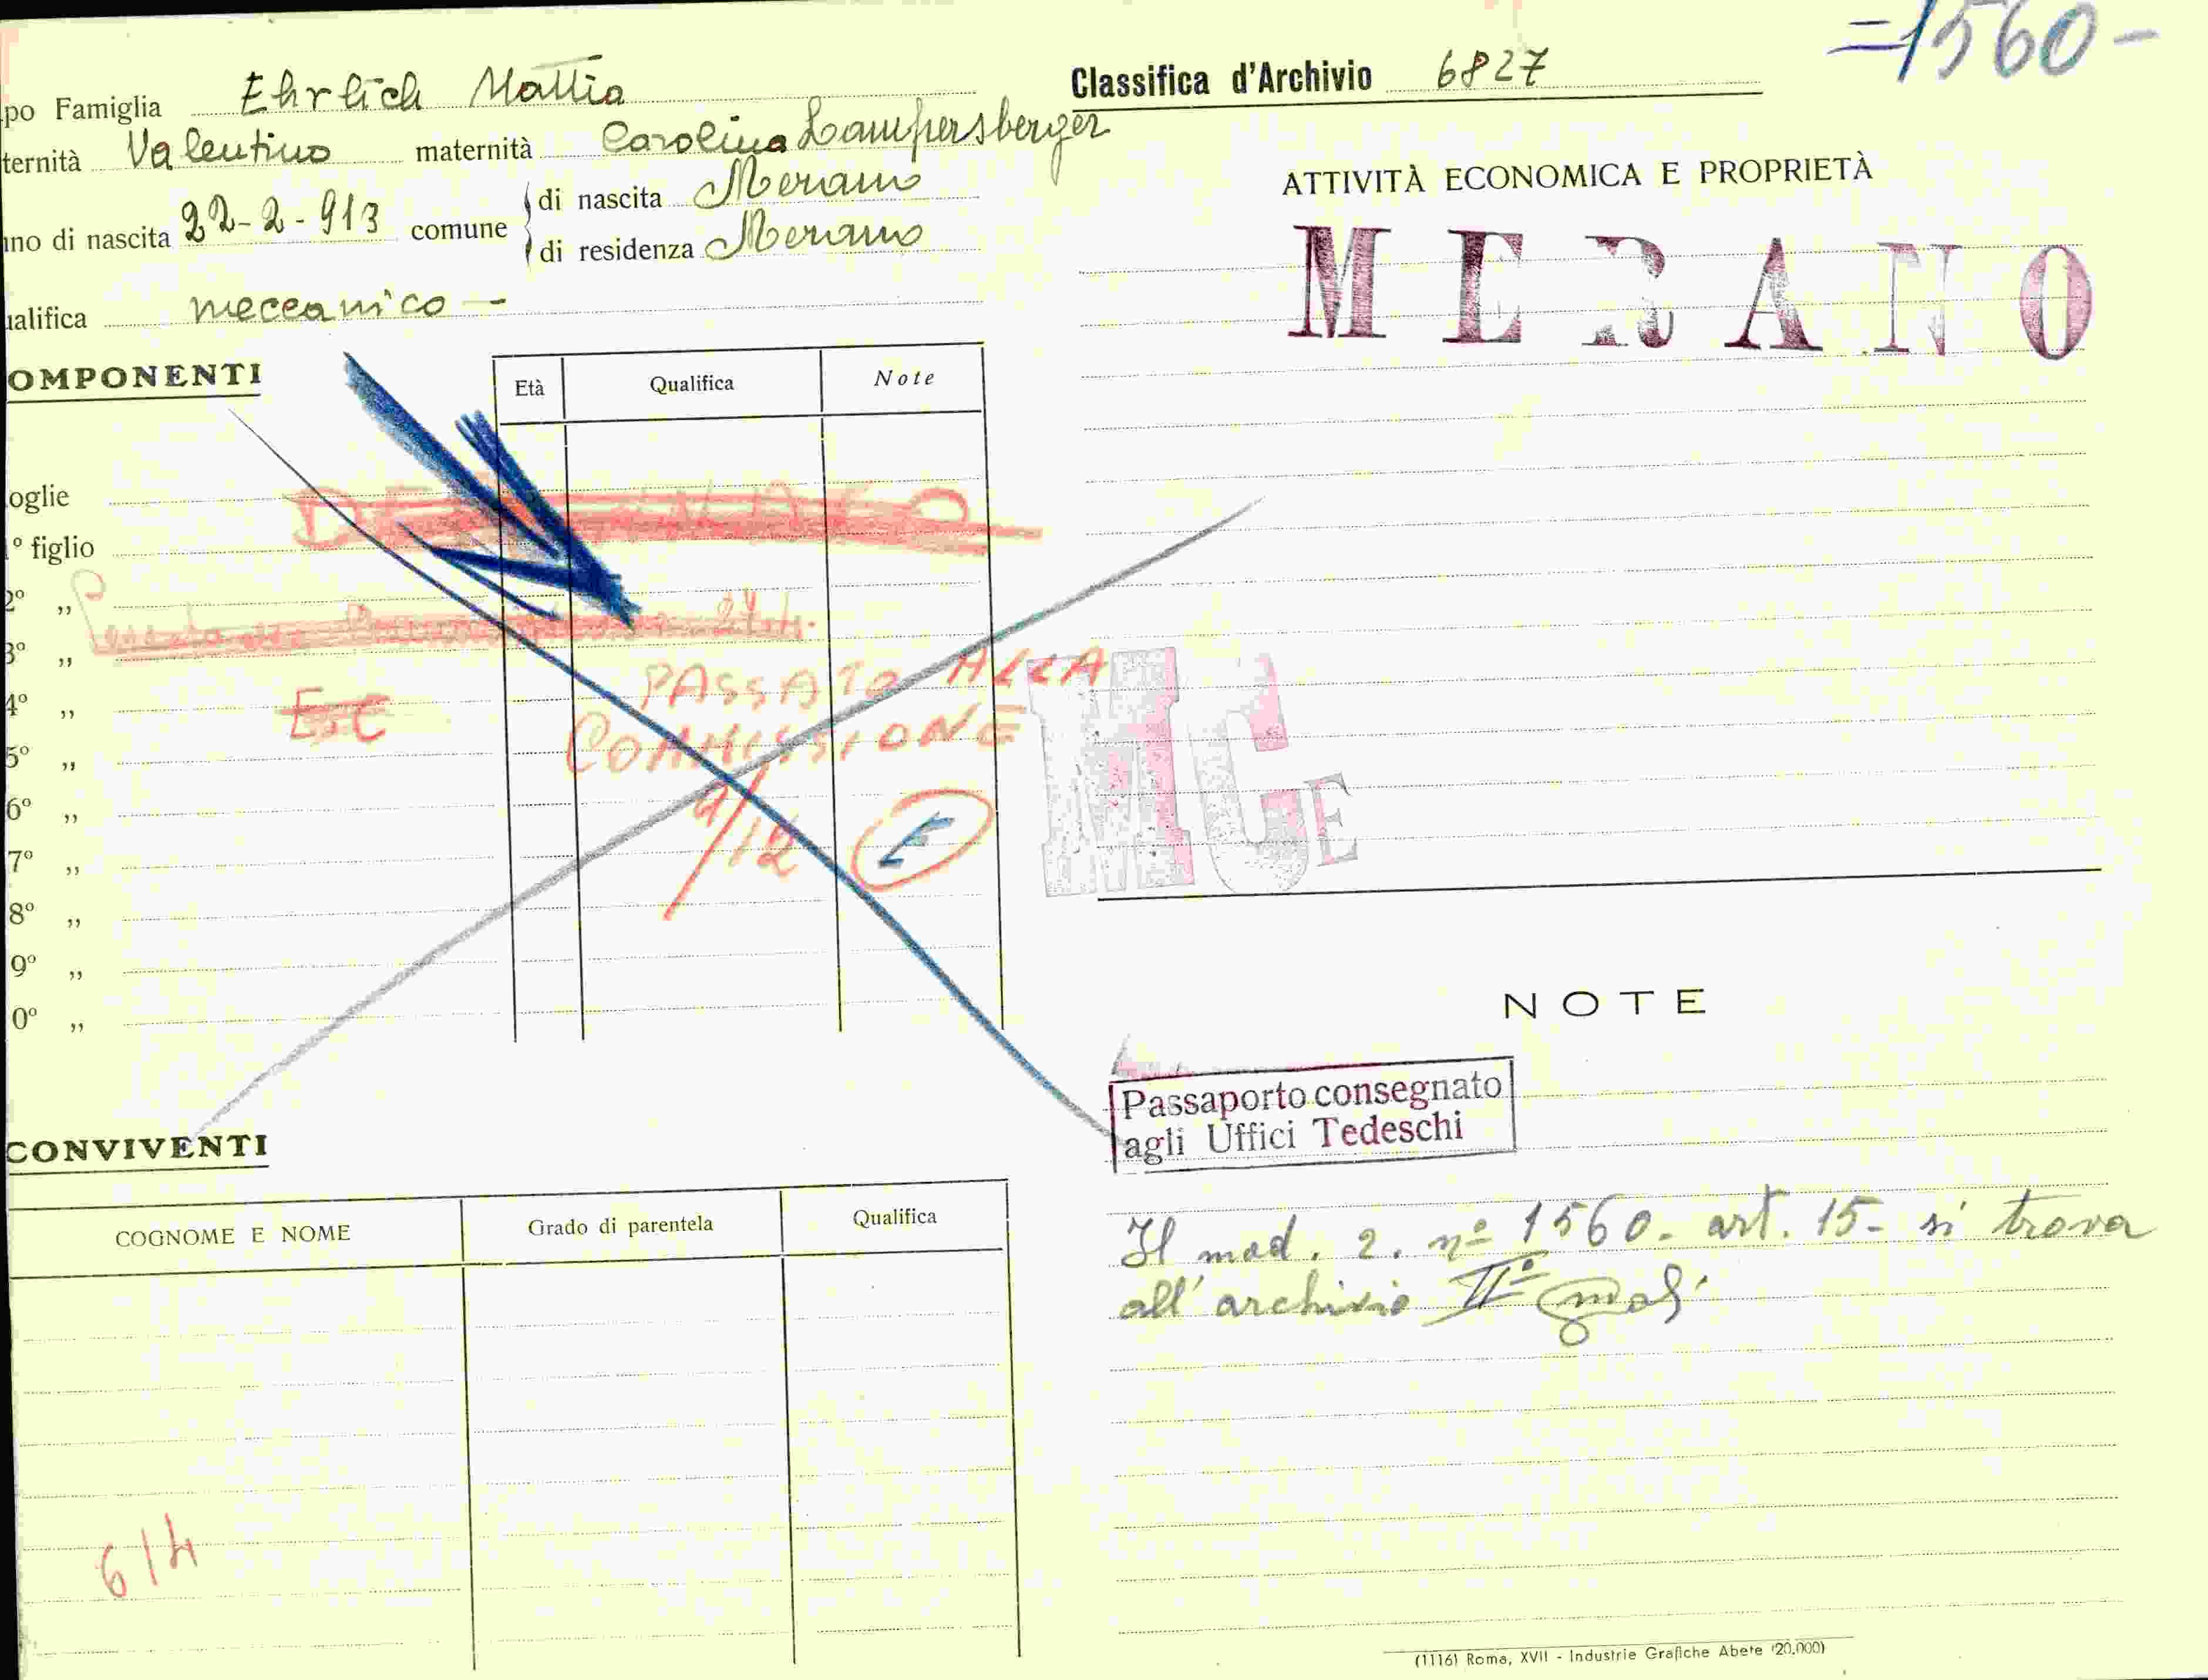 =1560-
po Famiglia Ehrlich Mattia
Classifica d'Archivio 6827
ternità Valentino maternità Carolina Lampersberger
no di nascita 22-2-913 comune
di nascita Merano
di residenza Merano
alifica meccanico -
OMPONENTI
Età Qualifica Note
oglie
° figlio
2° „
3° „
4° „
5° „
6° „
7° „
8° „
9° „
0° „
DEFINITO
E.C
PASSATO ALLA
COMMISSIONE
9/12 E
CONVIVENTI
COGNOME E NOME Grado di parentela Qualifica
6/4
ATTIVITÀ ECONOMICA E PROPRIETÀ
MERANO
NOTE
Passaporto consegnato
agli Uffici Tedeschi
Il mod. 2. nº 1560. art. 15- si trova
all'archivio IIº
(1116) Roma, XVII - Industrie Grafiche Abete (20.000)